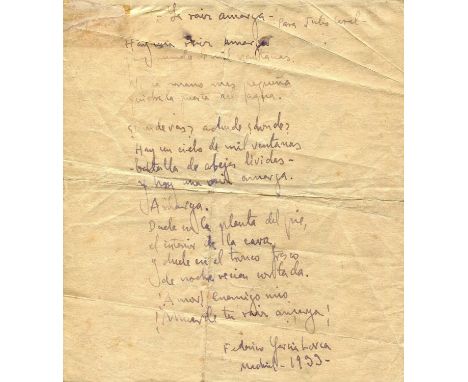 = La raíz amarga - Para Julio
Hay una raíz amarga
y un mundo de mil ventanas.
Ni la mano más pequeña
quiebra la puerta del agua.
¿Donde vas? adonde ¿donde?
Hay un cielo de mil ventanas
batalla de abejas lívidas -
y hay una raíz amarga.
Amarga.
Duele en la planta del pie,
el interior de la cara,
y duele en el tronco fresco
de noche recien cortada.
¡Amor! Enemigo mio
¡muerde tu raíz amarga!
Federico García Lorca
Madrid - 1933 -